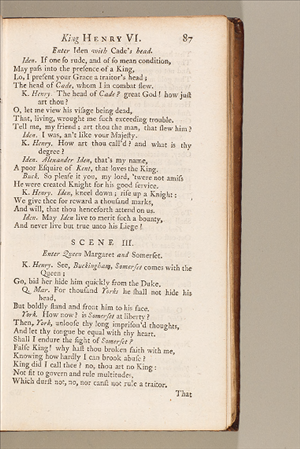 King HENRY VI. 87
Enter Iden with Cade's head.
Iden. If one so rude, and of so mean condition,
May pass into the presence of a King,
Lo, I present your Grace a traitor's head;
The head of Cade, whom I in combat slew.
K. Henry. The head of Cade? great God! how just
art thou?
O, let me view his visage being dead,
That, living, wrought me such exceeding trouble.
Tell me, my friend; art thou the man, that slew him?
Iden. I was, an't like your Majesty.
K. Henry. How art thou call'd? and what is thy
degree?
Iden. Alexander Iden, that's my name,
A poor Esquire of Kent, that loves the King.
Buck. So please it you, my lord, 'twere not amiss
He were created Knight for his good service.
K. Henry. Iden, kneel down; rise up a Knight:
We give thee for reward a thousand marks,
And will, that thou henceforth attend on us.
Iden. May Iden live to merit such a bounty,
And never live but true unto his Liege!
SCENE III.
Enter Queen Margaret and Somerset.
K. Henry. See, Buckingham, Somerset comes with the
Queen;
Go, bid her hide him quickly from the Duke.
Q. Mar. For thousand Yorks he shall not hide his
head,
But boldly stand and front him to his face.
York. How now? is Somerset at liberty?
Then, York, unloose thy long imprison'd thoughts,
And let thy tongue be equal with thy heart.
Shall I endure the sight of Somerset?
False King! why hast thou broken faith with me,
Knowing how hardly I can brook abuse?
King did I call thee? no, thou art no King:
Not fit to govern and rule multitudes,
Which durst not, no, nor canst not rule a traitor.
That